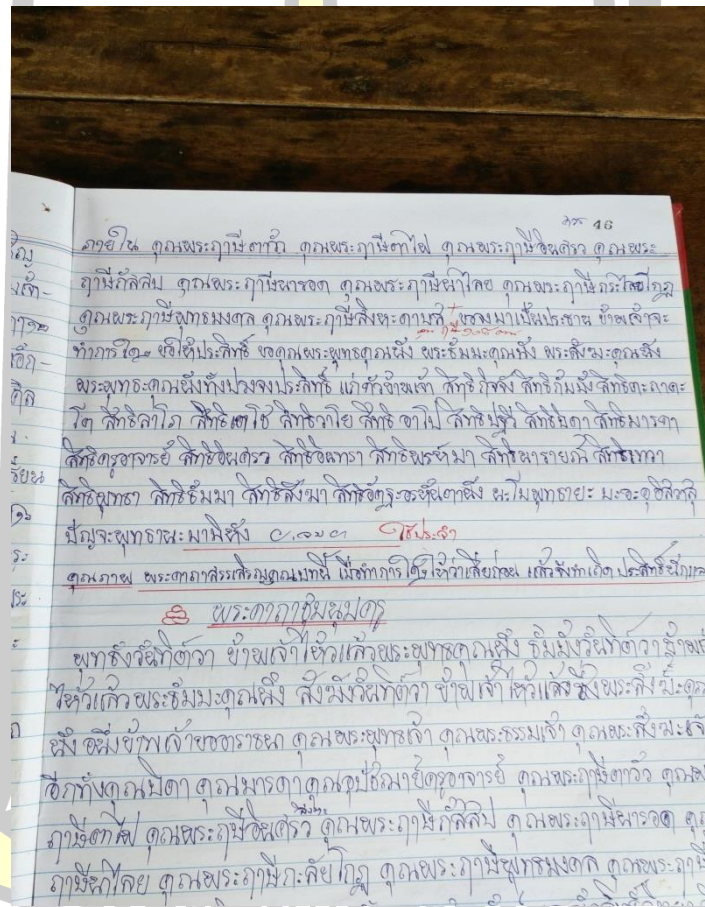 46
ภายใน คุณพระฤาษีตาวัว คุณพระฤาษีตาไฟ คุณพระฤาษีอินศรว คุณพระ
ฤาษีกัสสป คุณพระฤาษีนารอด คุณพระฤาษีนาไลย คุณพระฤาษีกะไลยโกฏ
คุณพระฤาษีพุทธมงคล คุณพระฤาษีสิงหะดาบส ขอจงมาเป็นประธาน ข้าพเจ้าจะ
ทำการใดๆ ขอให้ประสิทธิ์ ขอคุณพระพุทธคุณนัง พระธัมมะคุณนัง พระสังฆะคุณนัง
พระพุทธะคุณนังทั้งปวงจงประสิทธิ์ แก่ตัวข้าพเจ้า สิทธิกิจจัง สิทธิกัมมัง สิทธิตะถาคะ
โต สิทธิลาโภ สิทธิเตโช สิทธิวาโย สิทธิ อาโป สิทธิปฐวี สิทธิบิดา สิทธิมารดา
สิทธิครูอาจารย์ สิทธิอินศรว สิทธิอินทรา สิทธิพรหมา สิทธินารายณ์ สิทธิเทวา
สิทธิพุทธา สิทธิธัมมา สิทธิสังฆา นะโมพุทธายะ มะอะอุ
ปัญจะพุทธานะมามิหัง ใช้ประจำ
คุณภาพ พระคาถาสรรเสริญคุณบทนี้ เมื่อทำการใดๆ ให้ว่าเสียก่อน แล้วจึงทำเถิด ประสิทธิ์
พระคาถาชุมนุมครู
พุทธังวันทิต์วา ข้าพเจ้าไหว้แล้วพระพุทธคุณนัง ธัมมังวันทิต์วา ข้าพเจ้
ไหว้แล้วพระธัมมะคุณนัง สังฆังวันทิต์วา ข้าพเจ้าไหว้แล้วซึ่งพระสังฆะคุณ
นัง อนึ่งข้าพเจ้าขออาราธนา คุณพระพุทธเจ้า คุณพระธรรมเจ้า คุณพระสังฆะเจ้
อีกทั้งคุณบิดา คุณมารดา คุณอุปัชฌาย์ครูอาจารย์ คุณพระฤาษีตาวัว คุณพ
ฤาษีตาไฟ คุณพระฤาษีอินศรว คุณพระฤาษีกัสสป คุณพระฤาษีนารอด คุ
ฤาษีนาไลย คุณพระฤาษีกะลัยโกฏ คุณพระฤาษีพุทธมงคล คุณพระฤาษี